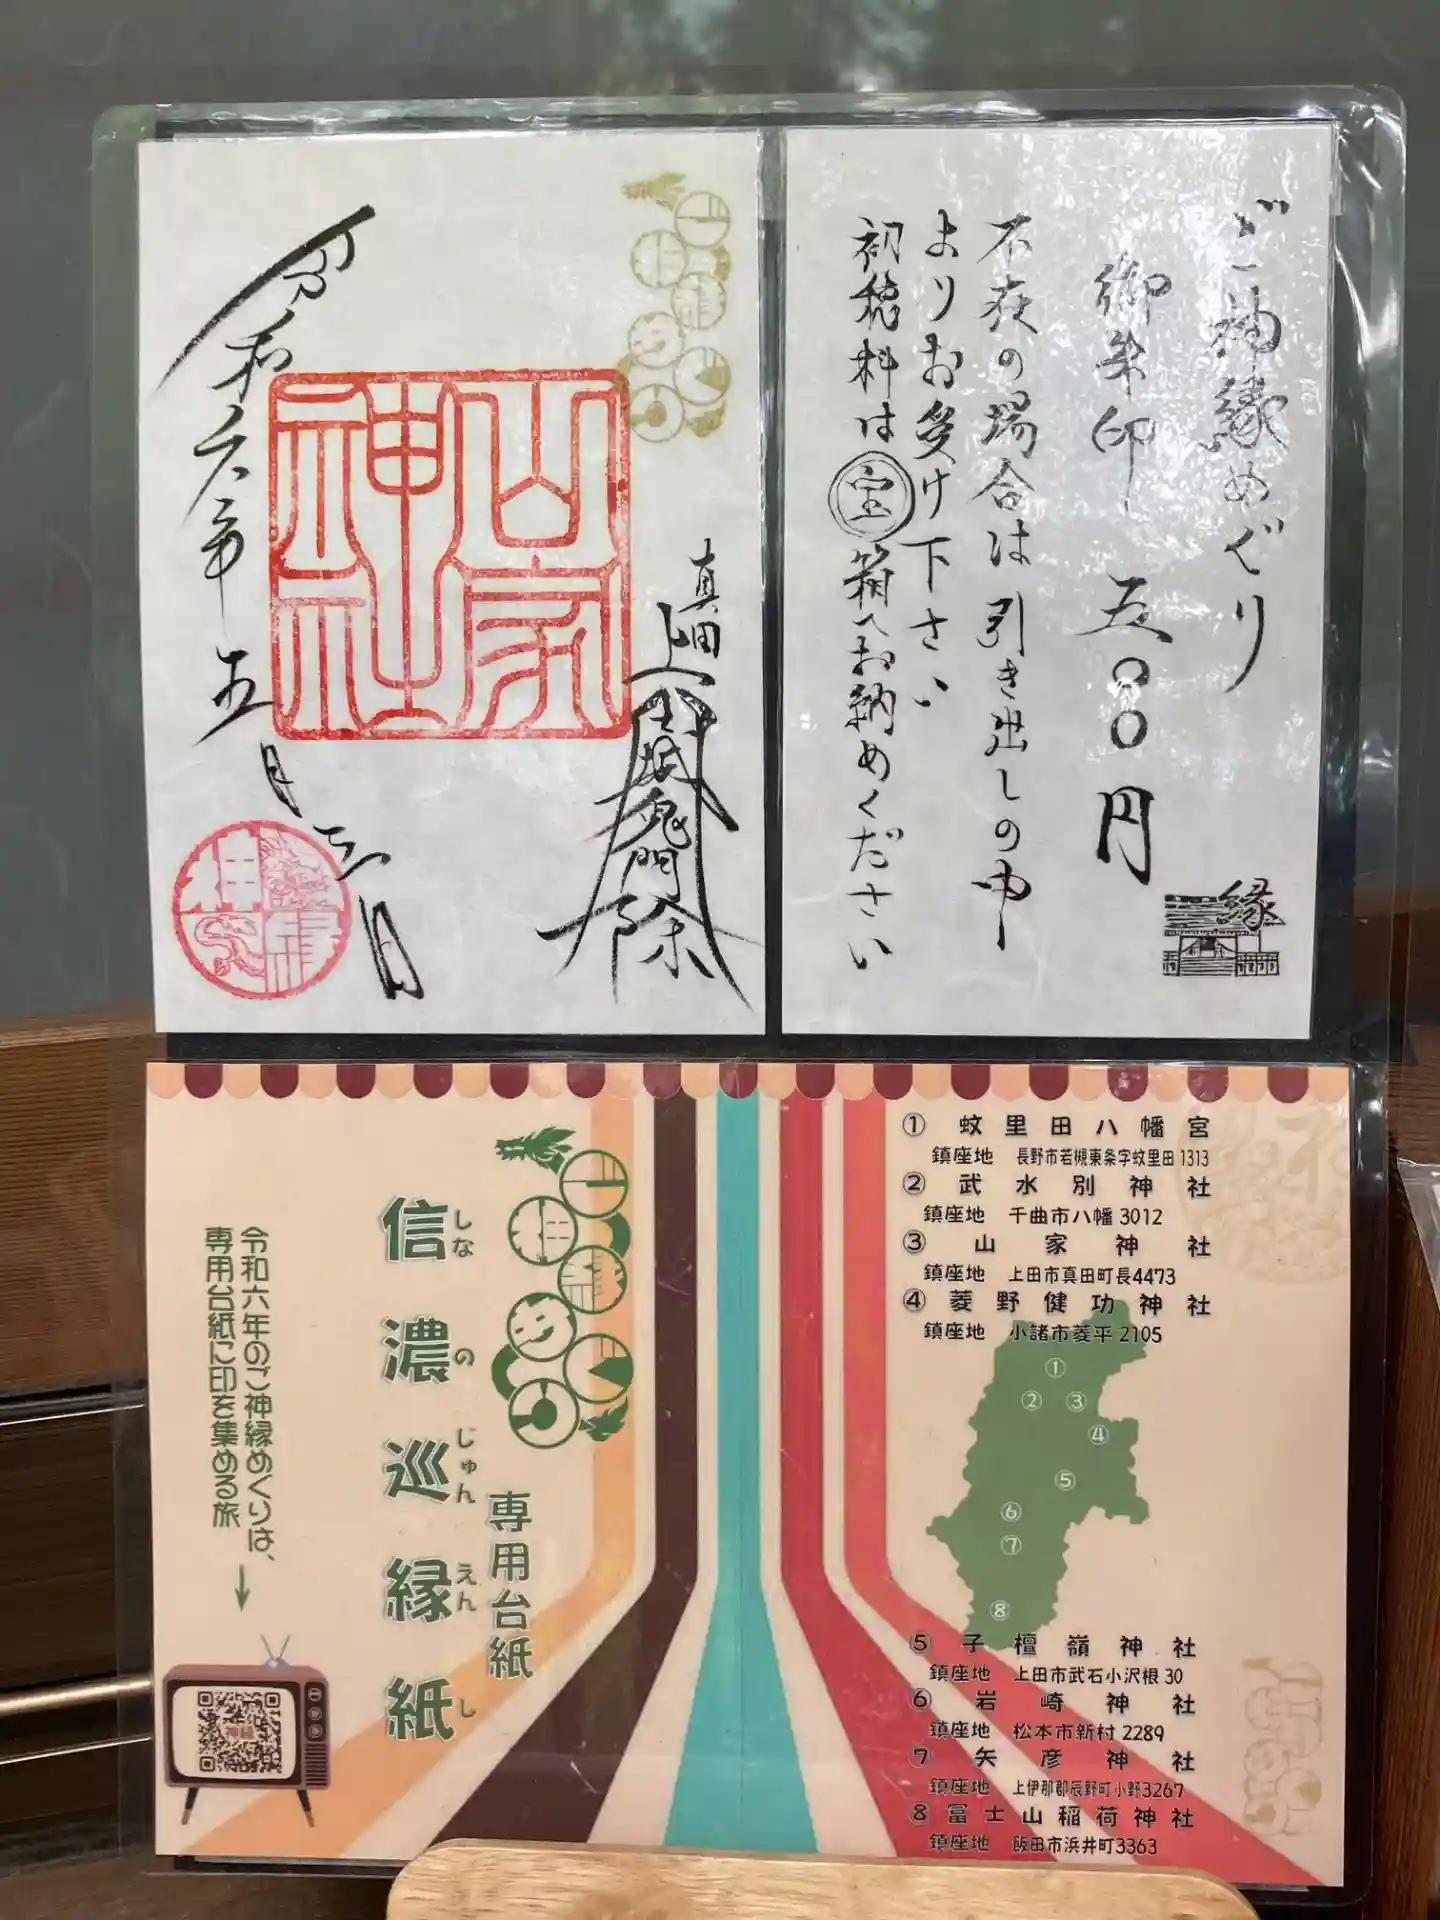 ご神縁めぐり
御朱印 五〇〇円
縁
不在の場合は引き出しの中
よりお受け下さい
初穂料は宝箱へお納めください
真田
上田城鬼門除
山家
神社
令和六年五月三日
信濃巡縁紙
しなのじゅんえんし
専用台紙
令和六年のご神縁めぐりは、
専用台紙に印を集める旅
神縁
① 蚊里田八幡宮
鎮座地 長野市若槻東条字蚊里田1313
② 武水別神社
鎮座地 千曲市八幡3012
③ 山家神社
鎮座地 上田市真田町長4473
④ 菱野健功神社
鎮座地 小諸市菱平2105
①
② ③
④
⑤
⑥
⑦
⑧
⑤ 子檀嶺神社
鎮座地 上田市武石小沢根30
⑥ 岩崎神社
鎮座地 松本市新村2289
⑦ 矢彦神社
鎮座地 上伊那郡辰野町小野3267
⑧ 冨士山稲荷神社
鎮座地 飯田市浜井町3363